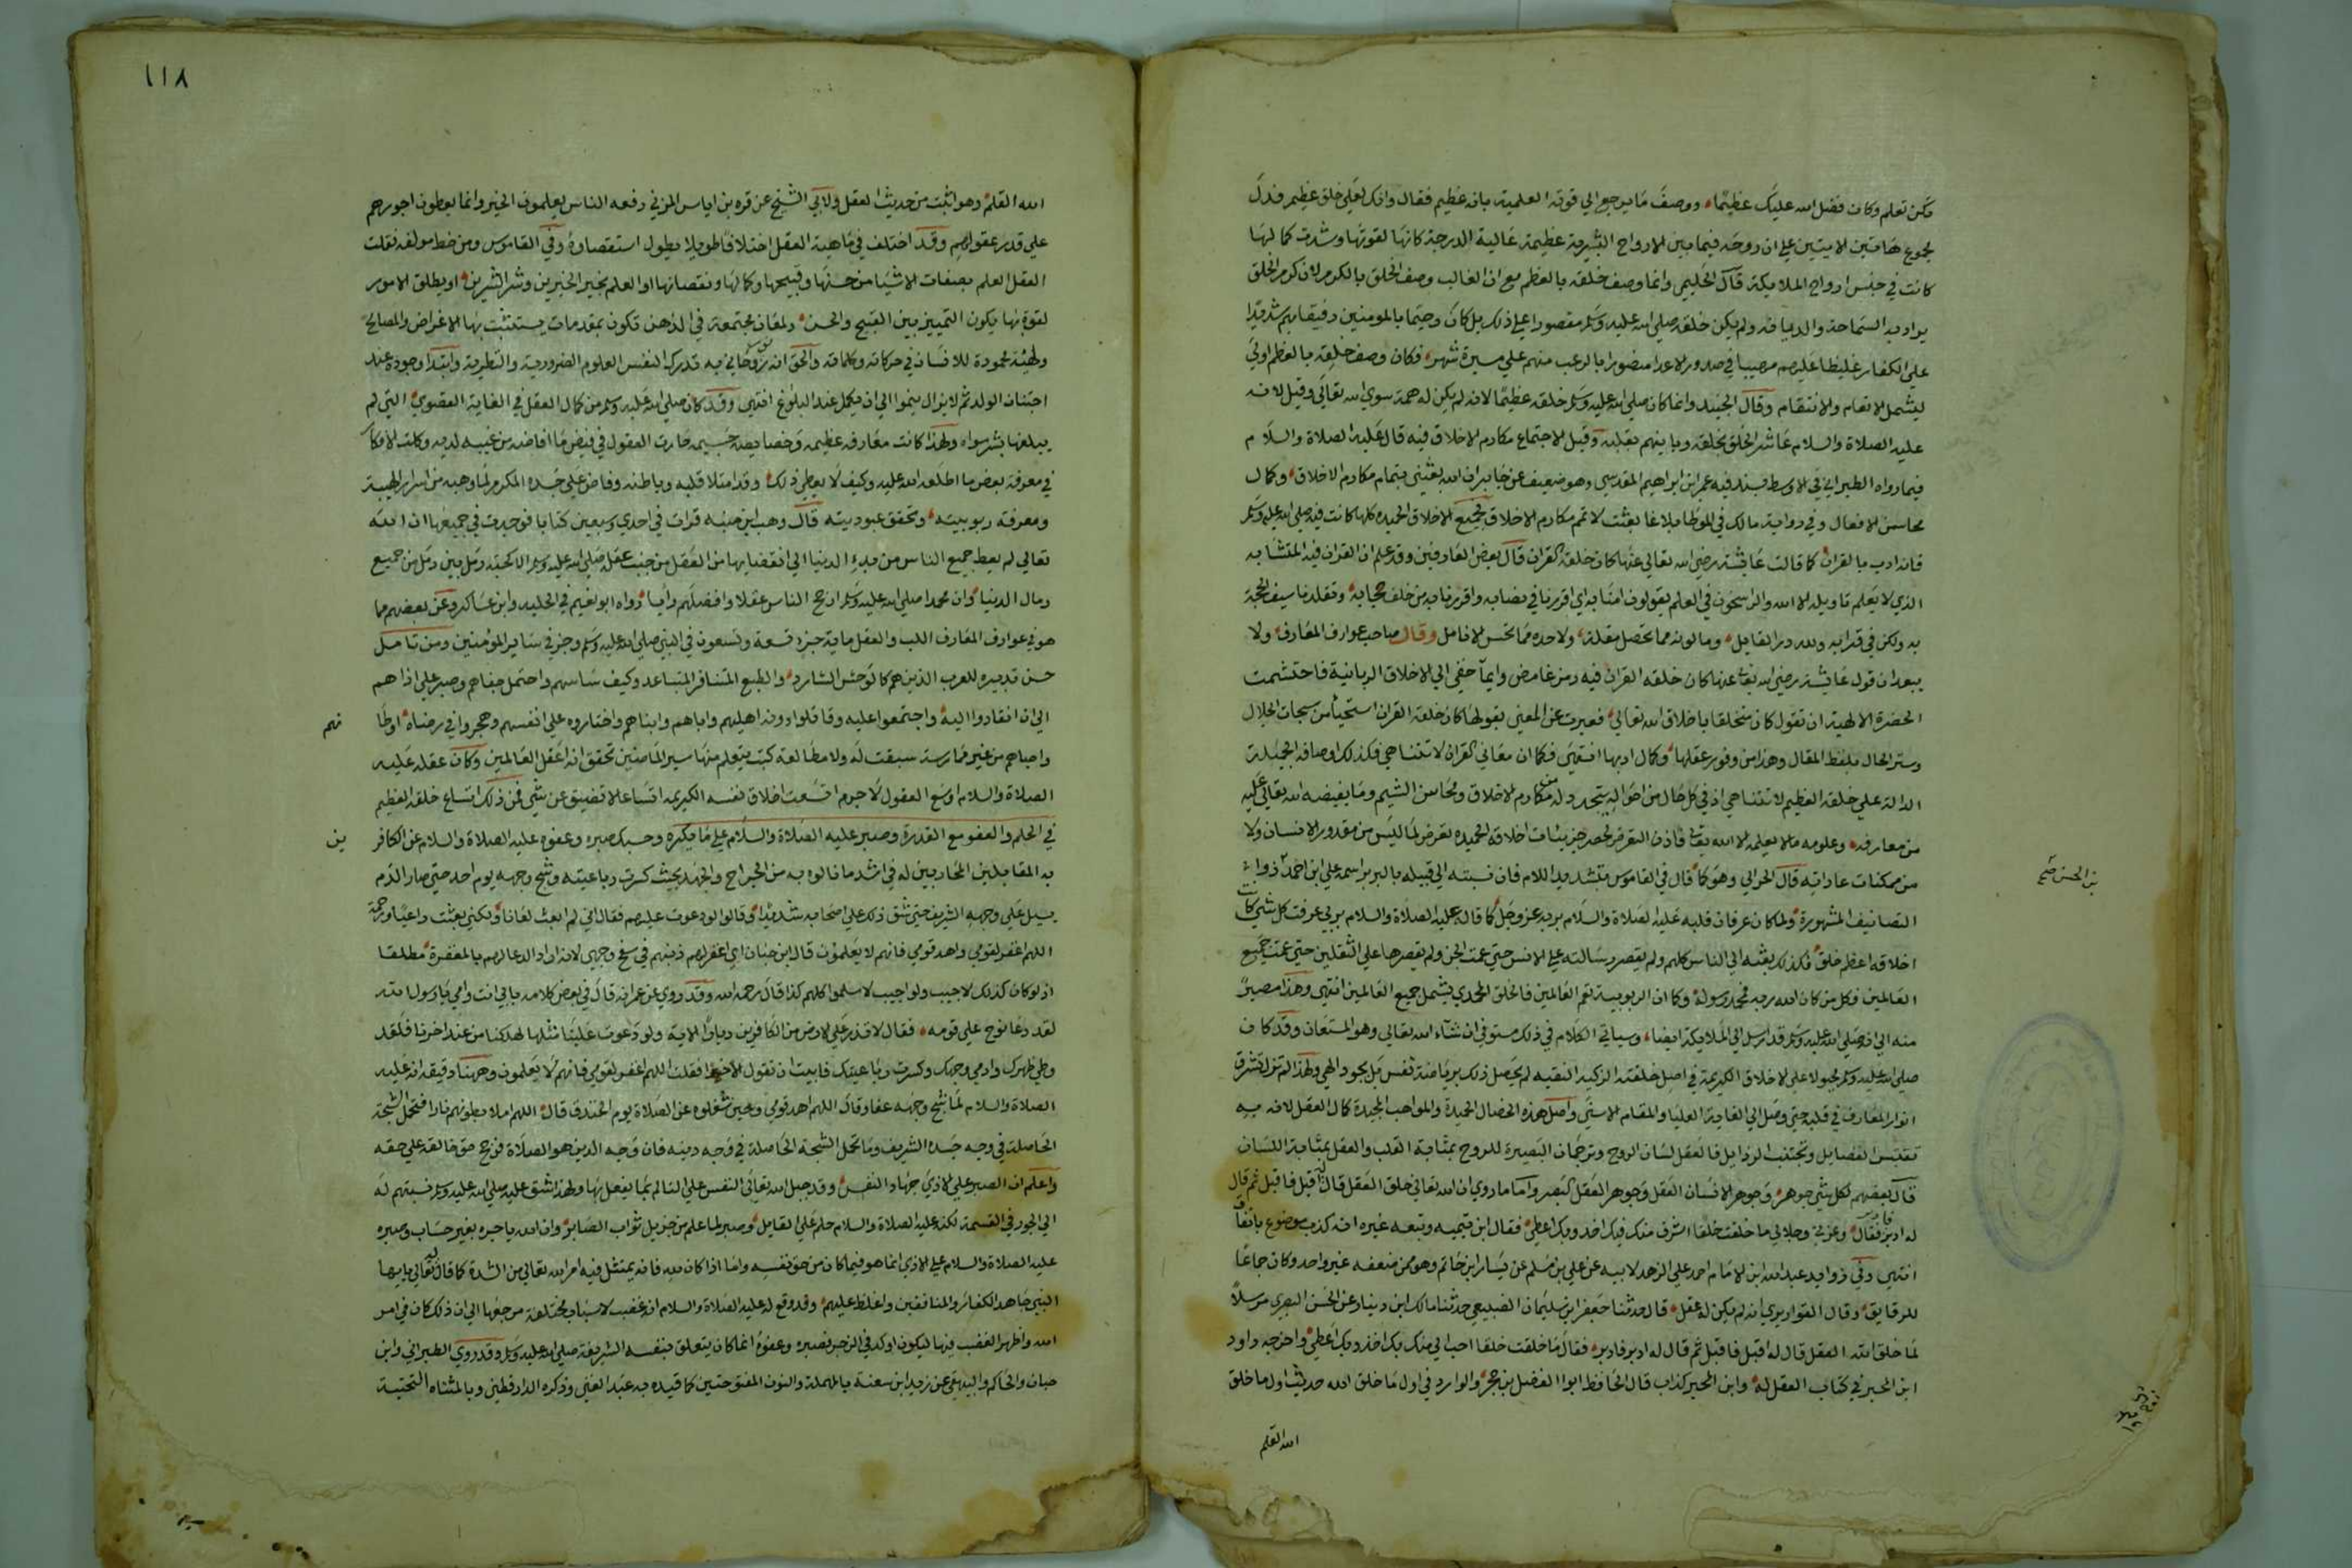 تكن تعلم وكان فضل الله عليك عظيما ووصف ما يرجع الي قوته العلمية بانه عظيم فقال وانك لعلي خلق عظيم فدل
مجموع هاتين الايتين علي ان روحه فيما بين الارواح البشرية عظيمة عالية الدرجة كانها لقوتها وشدة كمالها
كانت في جنس ارواح الملايكة قال الحليمي وانما وصف خلقه بالعظم مع ان الغالب وصف الخلق بالكرم لان كرم الخلق
يراد به السماحة والدماثة ولم يكن خلقه صلي الله عليه وسلم مقصورا علي ذلك بل كان رحيما بالمومنين رفيقا بهم شديدا
علي الكفار غليظا عليهم مهيبا في صدور الاعدا منصورا بالرعب منهم علي مسيرة شهر فكان وصف خلقه بالعظم اولي
ليشمل الانعام والانتقام وقال الجنيد وانما كان صلي الله عليه وسلم خلقه عظيما لانه لم يكن له همة سوي الله تعالي وقيل لانه
عليه الصلاة والسلام عاشر الخلق بخلقه وباينهم بقلبه وقيل لاجتماع مكارم الاخلاق فيه قال عليه الصلاة والسلام
فيما رواه الطبراني في الاوسط بسند فيه عمر ابن ابراهيم المقدسي وهو ضعيف عن جابر ان الله بعثني بتمام مكارم الاخلاق وكمال
محاسن الافعال وفي رواية مالك في الموطا بلاغا بعثت لاتمم مكارم الاخلاق فجميع الاخلاق الحميده كلها كانت فيه صلي الله عليه وسلم
فانه ادب بالقران كما قالت عايشة رضي الله تعالي عنها كان خلقه القران قال بعض العارفين وقد علم ان القران فيه المتشابه
الذي لا يعلم تاويله الا الله والراسخون في العلم يقولون امنا به اي اقررنا في نصابه واقررنا به من خلف حجابه وتقلدنا سيف الحجة
به ولكن في قرابه ولله در القايل وما لونه مما تحصل مقلة ولا حده مما تحس الانامل وقال صاحب عوارف المعارف ولا
يبعد ان قول عايشة رضي الله تعا عنها كان خلقه القران فيه رمز غامض وايما خفي الي الاخلاق الربانية فاحتشمت
الحضرة الالهية ان تقول كان متخلقا باخلاق الله تعالي فعبرت عن المعني بقولها كان خلقه القران استحيا من سبحات الجلال
وستر الحال بلفظ المقال وهذا من وفور عقلها وكمال ادبها انتهي فكما ان معاني القران لا تتناهي فكذلك اوصافه الجميلة
الدالة علي خلقه العظيم لا تتناهي اذ في كل حال من احواله يتجدد له من مكارم الاخلاق ومحاسن الشيم وما يفيضه الله تعالي عليه
من معارفه وعلومه ما لا يعلمه الا الله تعا فاذن التعرض لحصر جزييات اخلاقه الحميده تعرض لما ليس من مقدور الانسان ولا
من ممكنات عاداته قال الحرالي وهو كما قال في القاموس بتشديد اللام فان نسبته الي قبيلة بالبربر اسمه علي ابن احمد ذوات
بن الحسن صح
التصانيف المشهورة ولما كان عرفان قلبه عليه الصلاة والسلام بربه عز وجل كما قال عليه الصلاة والسلام بربي عرفت كل شي كانت
اخلاقه اعظم خلق فكذلك بعثه الي الناس كلهم ولم يقصر رسالته علي الانس حتي عمت الجن ولم يقصرها علي الثقلين حتي عمت جميع
العالمين فكل من كان الله ربه فمحمد رسوله وكما ان الربوبية تعم العالمين فالخلق المحمدي يشمل جميع العالمين انتهي وهذا مصير
منه الي انه صلي الله عليه وسلم قد ارسل الي الملايكة ايضا وسياتي الكلام في ذلك مستوفي ان شاء الله تعالي وهو المستعان وقد كان
صلي الله عليه وسلم مجبولا علي الاخلاق الكريمة في اصل خلقته الزكية النقيه لم يحصل ذلك برياضة نفس بل بجود الهي ولهذا لم تزل تشرق
انوار المعارف في قلبه حتي وصل الي الغاية العليا والمقام الاسني واصل هذه الخصال الحميدة والمواهب المجيدة كمال العقل لانه به
تقتبس الفضايل وتجتنب الرذايل فالعقل لسان الروح وترجمان البصيرة للروح بمثابة القلب والعقل بمثابة اللسان
قال بعضهم لكل شي جوهر وجوهر الانسان العقل وجوهر العقل الصبر واما ما روي ان الله تعالي خلق العقل قال له اقبل فاقبل ثم قال
له ادبر فادبر فقال وعزتي وجلالي ما خلقت خلقا اشرف منك فبك اخذ وبك اعطي فقال ابن تيميه وتبعه غيره انه كذب موضوع باتفاق
انتهي وفي زوايد عبد الله ابن الامام احمد علي الزهد لابيه عن علي بن مسلم عن يسار ابن حاتم وهو ممن ضعفه غير واحد وكان جماعا
للرقايق وقال القواريري انه لم يكن له عقل قال حدثنا جعفر ابن سليمان الضبيعي حدثنا مالك ابن دينار عن الحسن البصري مرسلا
لما خلق الله العقل قال له اقبل فاقبل ثم قال له ادبر فادبر فقال ما خلقت خلقا احب الي منك بك اخذ وبك اعطي واخرجه داود
ابن المحبر في كتاب العقل له وابن المحبر كذاب قال الحافظ ابوا الفضل بن حجر والوارد في اول ما خلق الله حديث اول ما خلق
الله القلم
١١٨
الله القلم وهو اثبت من حديث العقل ولابي الشيخ عن قره بن اياس المزني رفعه الناس يعلمون الخير وانما يعطون اجورهم
علي قدر عقولهم وقد اختلف في ماهية العقل اختلافا طويلا يطول استقصاوه وفي القاموس ومن خط مولفه نقلت
العقل العلم بصفات الاشيا من حسنها وقبيحها وكمالها ونقصانها او العلم بخير الخيرين وشر الشرين او يطلق الامور
لقوة بها يكون التمييز بين القبيح والحسن ولمعان مجتمعة في الذهن تكون بمقدمات يستتب بها الاغراض والمصالح
ولهيئة محمودة للانسان في حركاته وكلماته والحق انه نور روحاني به تدرك النفس العلوم الضرورية والنظرية وابتدا وجوده عند
اجتنان الولد ثم لا يزال ينموا الي ان يكمل عند البلوغ انتهي وقد كان صلي الله عليه وسلم من كمال العقل في الغاية القصوي التي لم
يبلغها بشر سواه ولهذا كانت معارفه عظيمه وخصايصه جسيمه حارت العقول في فيض ما افاضه من غيبه لديه وكلت الافكار
في معرفة بعض ما اطلعه الله عليه وكيف لا يعطي ذلك وقد امتلا قلبه وباطنه وفاض علي جسده المكرم لما وهبه من اسرار الهيبة
ومعرفة ربوبيته وتحقق عبوديته قال وهب ابن منبه قرات في احدي وسبعين كتابا فوجدت في جميعها ان الله
تعالي لم يعط جميع الناس من بدء الدنيا الي انقضايها من العقل من جنب عقل صلي الله عليه وسلم الا كحبة رمل بين رمل من جميع
رمال الدنيا وان محمدا صلي الله عليه وسلم ارجح الناس عقلا وافضلهم رايا رواه ابو نعيم في الحليه وابن عساكر وعن بعضهم مما
هو في عوارف المعارف اللب والعقل ماية جزء تسعة وتسعون في النبي صلي الله عليه وسلم وجزو في ساير المومنين ومن تامل
حسن تدبيره للعرب الذين هم كالوحش الشارد والطبع المتنافر المتباعد وكيف ساسهم واحتمل جفاهم وصبر علي اذاهم
الي ان انقادوا اليه واجتمعوا عليه وقاتلوا دونه اهليهم واباهم وابناهم واختاروه علي انفسهم وهجروا في رضاه اوطا
نهم
واحباهم من غير ممارسة سبقت له ولا مطالعة كتب يتعلم منها سير الماضين تحقق انه اعقل العالمين وكان عقله عليه
الصلاة والسلام اوسع العقول لا جرم اتسعت اخلاق نفسه الكريمه اتساعا لا تضيق عن شي فمن ذلك اتساع خلقه العظيم
في الحلم والعفو مع القدرة وصبره عليه الصلاة والسلام علي ما يكره وحسبك صبره وعفوه عليه الصلاة والسلام عن الكافر
ين
به المقابلين المحاربين له في اشد ما نالوه به من الجراح والجهد بحيث كسرت رباعيته وشج وجهه يوم احد حتي صار الدم
يسيل علي وجهه الشريف حتي شق ذلك علي اصحابه شديدا وقالوا لو دعوت عليهم فقال اني لم ابعث لعانا ولكني بعثت داعيا ورحمة
اللهم اغفر لقومي واهد قومي فانهم لا يعلمون قال ابن حبان اي اغفر لهم ذنبهم في شج وجهي لانه اراد الدعا لهم بالمغفرة مطلقا
اذ لو كان كذلك لاجيب ولو اجيب لاسلموا كلهم كذا قال رحمه الله وقد روي عن عمر انه قال في بعض كلامه بابي انت وامي يا رسول الله
لقد دعا نوح علي قومه فقال لا تذر علي الارض من الكافرين ديارا الاية ولو دعوت علينا مثلها لهلكنا من عند اخرنا فلقد
وطي ظهرك وادمي وجهك وكسرت رباعيتك فابيت ان تقول الا خيرا فقلت اللهم اغفر لقومي فانهم لا يعلمون وههنا دقيقة انه عليه
الصلاة والسلام لما شج وجهه عفا وقال اللهم اهد قومي وحين شغلوه عن الصلاة يوم الخندق قال اللهم املا بطونهم نارا فتحمل الشجة
الحاصلة في وجه جسده الشريف وما تحمل الشجة الحاصلة في وجه دينه فان وجه الدين هو الصلاة فرجح حق خالقه علي حقه
واعلم ان الصبر علي الاذي جهاد النفس وقد جبل الله تعالي النفس علي التالم بما يفعل بها ولهذا شق عليه صلي الله عليه وسلم نسبتهم له
الي الجور في القسمة لكنه عليه الصلاة والسلام حلم علي القايل وصبر لما علم من جزيل ثواب الصابر وان الله ياجره بغير حساب وصبره
عليه الصلاة والسلام علي الاذي انما هو فيما كان من حق نفسه واما اذا كان لله فانه يمتثل فيه امر الله تعالي من الشدة كما قال له تعالي يا ايها
النبي جاهد الكفار والمنافقين واغلظ عليهم وقد وقع له عليه الصلاة والسلام انه غضب لاسباب مختلفة مرجعها الي ان ذلك كان في امر
الله واظهر الغضب فيها ليكون اوكد في الزجر فصبره وعفوه انما كان يتعلق بنفسه الشريفة صلي الله عليه وسلم وقد روي الطبراني وابن
حبان والحاكم والبيهقي عن زيد ابن سعنة بالمهملة والنون المفتوحتين كما قيده به عبد الغني وذكره الدارقطني وبالمثناه التحتية